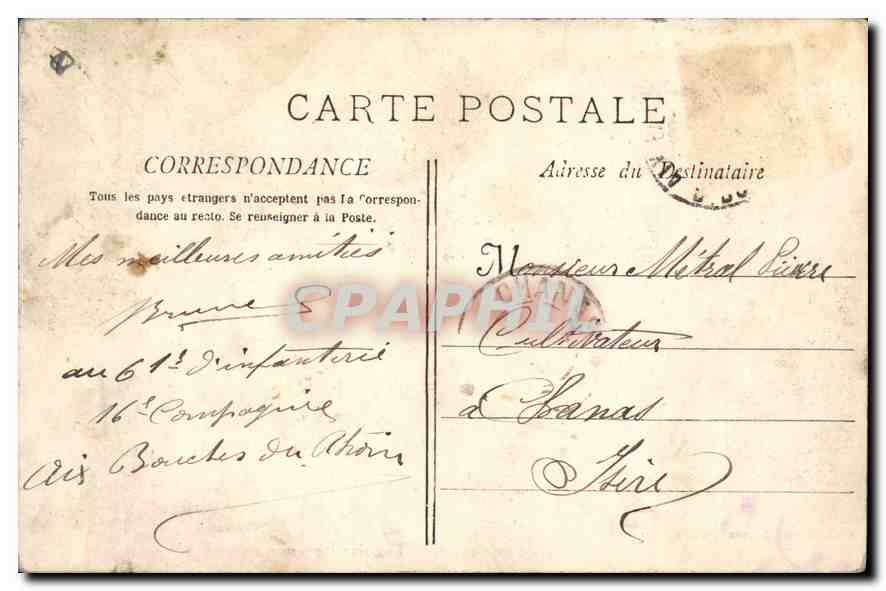 CARTE POSTALE
CORRESPONDANCE
Tous les pays etrangers n'acceptent pas la Correspon-
dance au recto. Se renseigner à la Poste.
Mes meilleures amitiés
Brune
au 61e d'infanterie
16e Compagnie
Aix Bouches du Rhône
Adresse du Destinataire
Monsieur Métral Pierre
Cultivateur
à Chanas
Isère
CPAPHIL